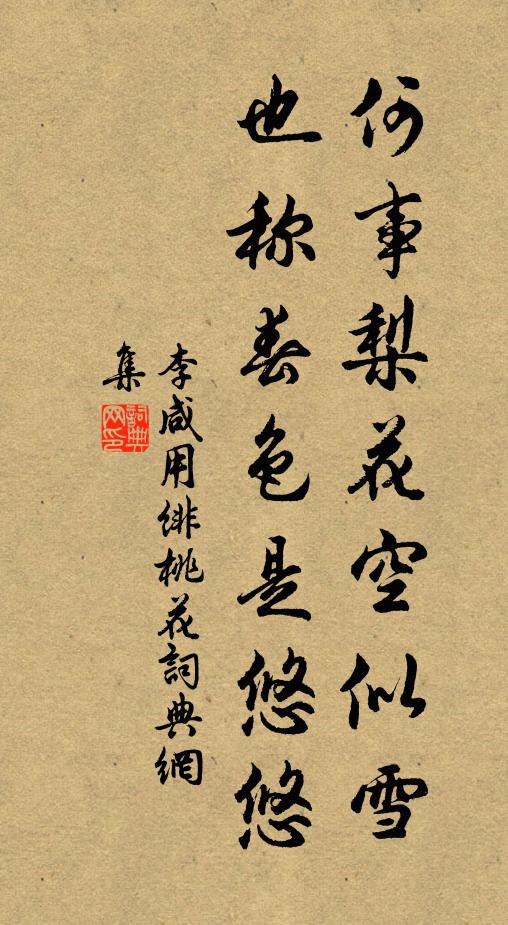 何事梨花空似雪
也称春色是悠悠
李咸用绯桃花詞典網
集
詞典网印